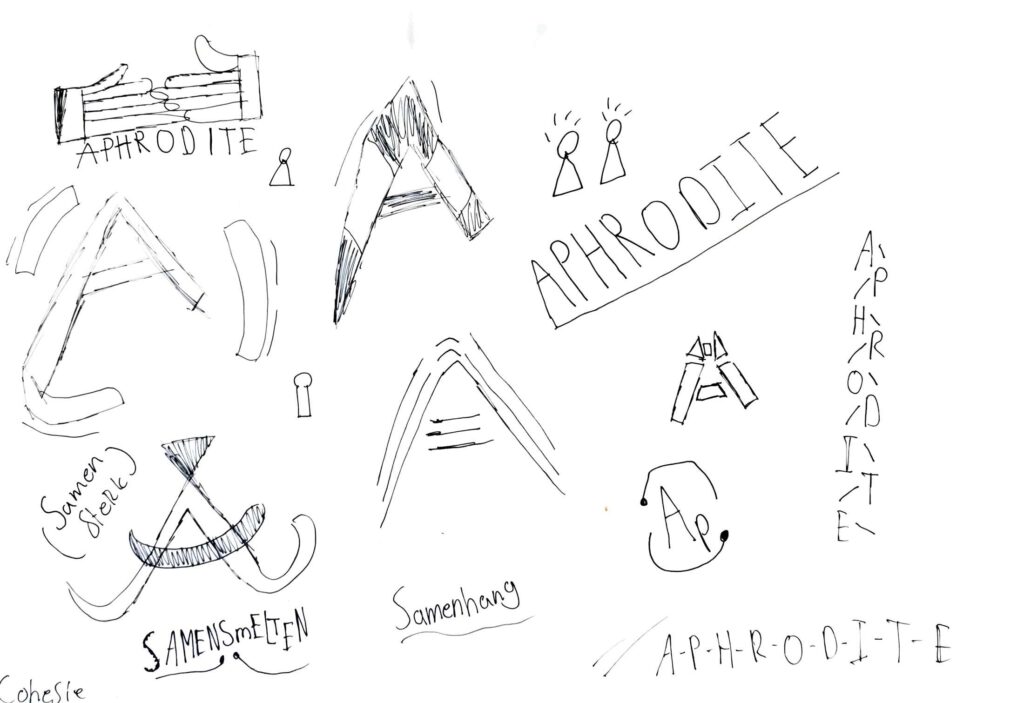 APHRODITE
A
APHRODITE
A
A
A
A
Ap
A
Samen
sterk
SAMENSmELTEN
Samenhang
APHRODITE
A-P-H-R-O-D-I-T-E
Cohesie